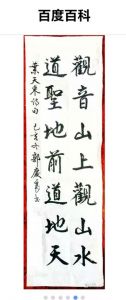 百度百科
觀音山上觀山水
道聖地前道地天
葉天東詩句 己亥冬鄭慶